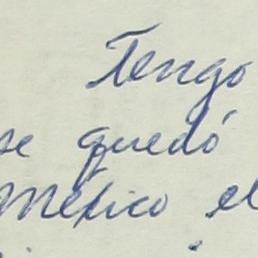 Tengo
se quedó
México el